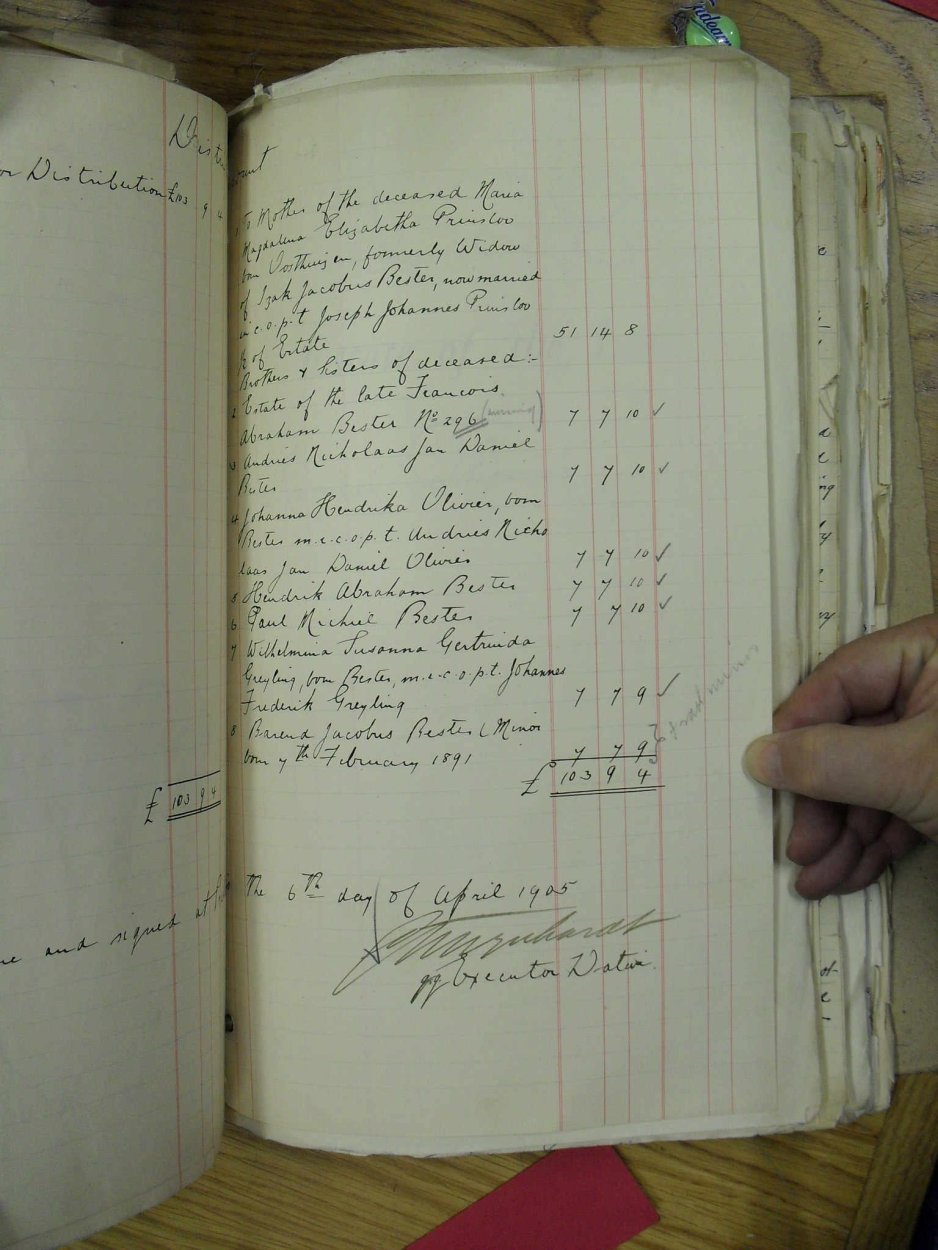 Distri
ount
or Distribution £103 9 4
1 To Mother of the deceased Maria
Magdalena Elizabetha Prinsloo
van Oosthuizen, formerly Widow
of Izak Jacobus Bester, now married
in c.o.p.t Joseph Johannes Prinsloo
½ of Estate 51 14 8
Brothers & Sisters of deceased:-
2 Estate of the late Francois
Abraham Bester No 296 7 7 10 ✓
3 Andries Nicholaas Jan Daniel
Bester 7 7 10 ✓
4 Johanna Hendrika Olivier, born
Bester m.i.c.o.p.t. Andries Nicho
laas Jan Daniel Olivier 7 7 10 ✓
5 Hendrik Abraham Bester 7 7 10 ✓
6 Paul Michiel Bester 7 7 10 ✓
7 Wilhelmina Susanna Gertruida
Greyling, born Bester, m.i.c.o.p.t. Johannes
Frederik Greyling 7 7 9 ✓
8 Barend Jacobus Bester (Minor
born 7th February 1891 7 7 9
£ 103 9 4
£ 103 9 4
and signed at
the 6th day of April 1905
qq Executor Dative